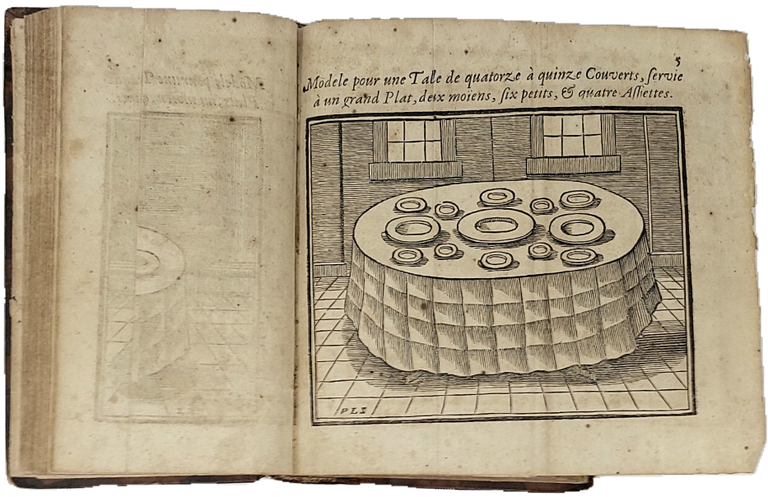 5
Modele pour une Table de quatorze à quinze Couverts, servie
à un grand Plat, deux moiens, six petits, & quatre Assiettes.
PLS